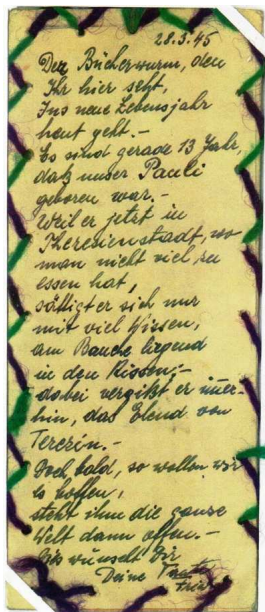 28.3.45
Der Bücherwurm, den
Ihr hier seht,
Ins neue Lebensjahr
heut geht.-
Es sind gerade 13 Jahr,
daß unser Pauli
geboren war.-
Weil er jetzt in
Theresienstadt, wo
man nicht viel zu
essen hat,
sättigt er sich nur
mit viel Wissen,
am Bauche liegend
in den Kissen;-
dabei vergißt er immer-
hin, das Elend von
Terezin.-
Doch bald, so wollen wir
es hoffen,
steht ihm die ganze
Welt dann offen.-
Dies wünscht Dir
Deine